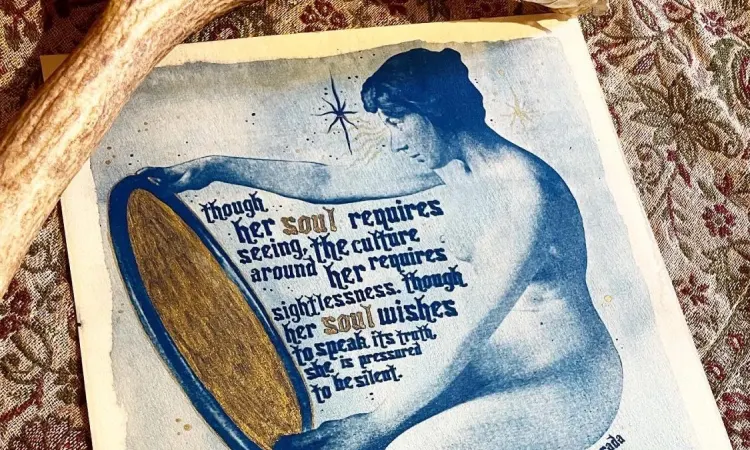 though
her soul requires
seeing, the culture
around her requires
sightlessness. though
her soul wishes
to speak its truth,
she is pressured
to be silent.